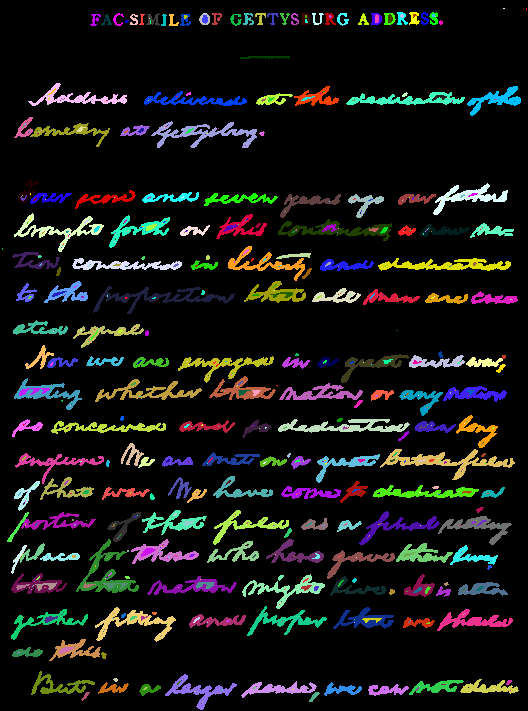 FAC-SIMILE OF GETTYSBURG ADDRESS.
Address delivered at the dedication of the
Cemetery at Gettysburg.
Four score and seven years ago our fathers
brought forth on this continent, a new na=
tion, conceived in Liberty, and dedicated
to the proposition that all men are cre=
ated equal.
Now we are engaged in a great civil war,
testing whether that nation, or any nation
so conceived and so dedicated, can long
endure. We are met on a great battle-field
of that war. We have come to dedicate a
portion of that field, as a final resting
place for those who here gave their lives,
that that nation might live. It is alto=
gether fitting and proper that we should
do this.
But, in a larger sense, we can not dedi=